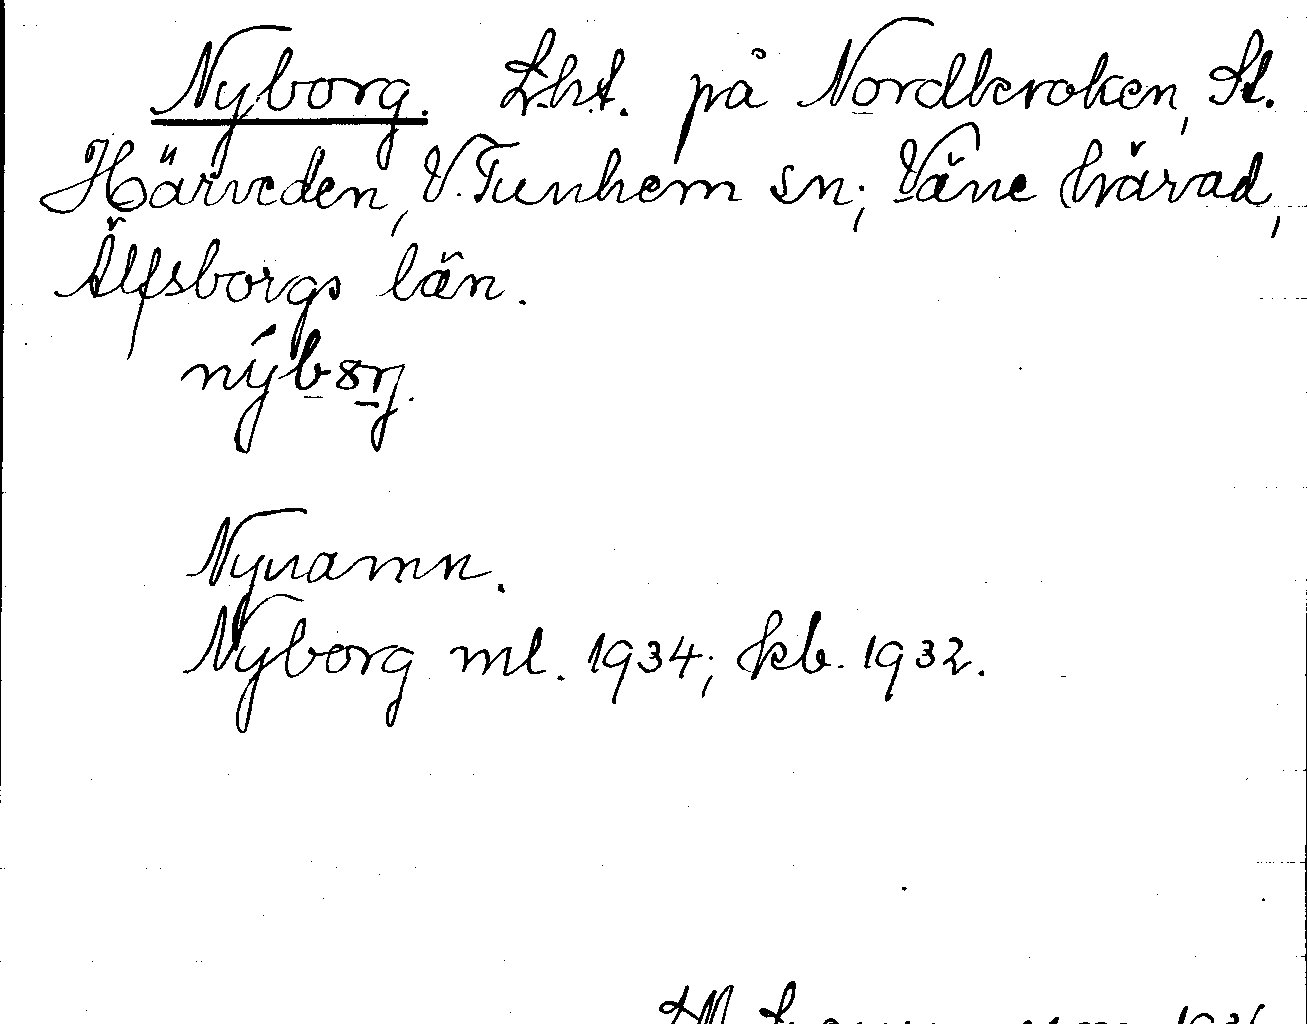 Nyborg. Lht. på Nordkroken, St.
Härveden, V. Tunhem sn; Väne härad,
Älfsborgs län.
Nynamn.
Nyborg ml. 1934; kb. 1932.